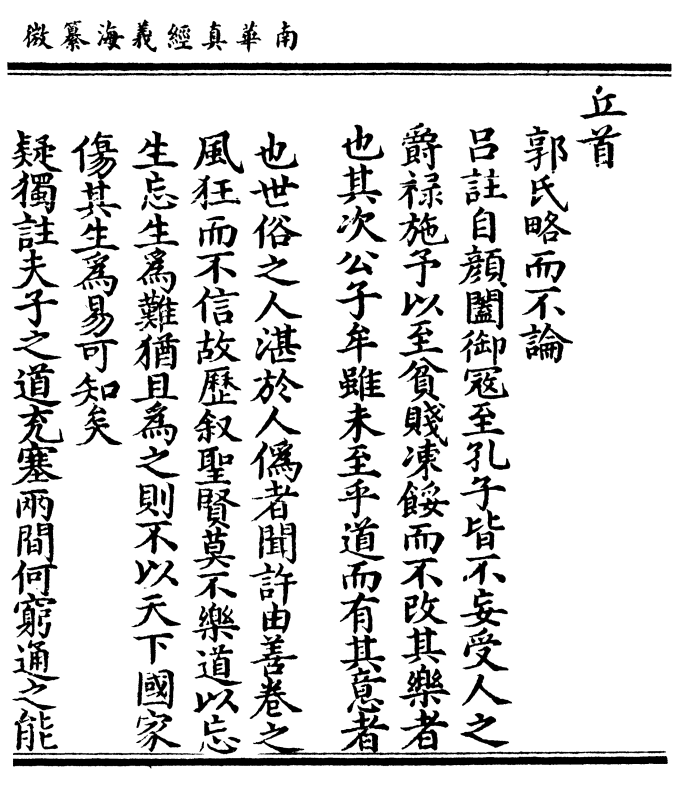 南華真經義海纂微
丘首
郭氏略而不論
呂註自顔闔御寇至孔子皆不妄受人之
爵禄施予以至貧賤凍餒而不改其樂者
也其次公子牟雖未至乎道而有其意者
也世俗之人湛於人僞者聞許由善卷之
風狂而不信故歷叙聖賢莫不樂道以忘
生忘生為難猶且為之則不以天下國家
傷其生為易可知矣
疑獨註夫子之道充塞兩間何窮通之能